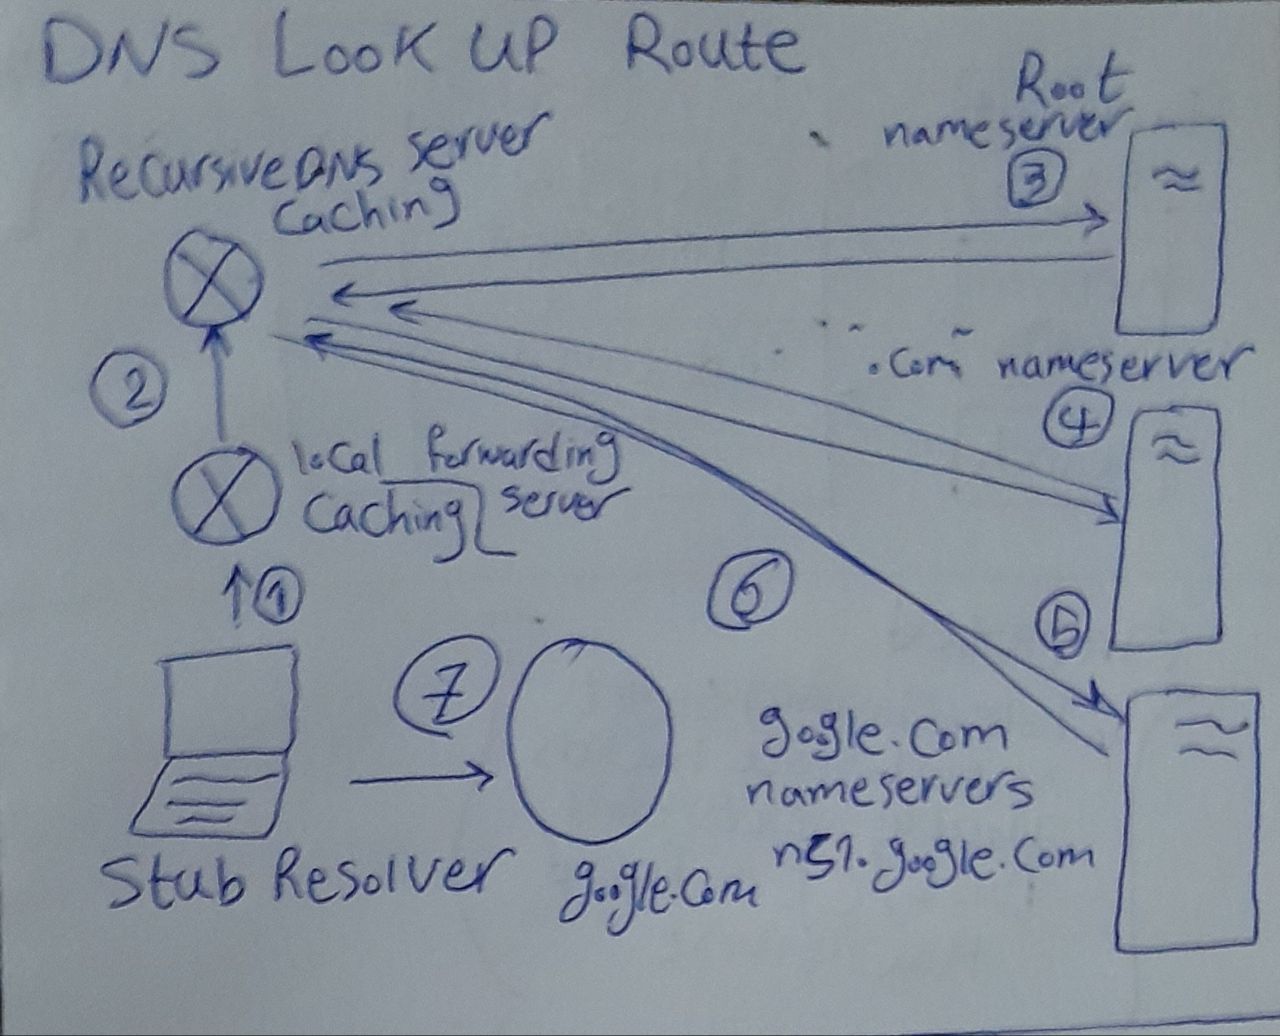 DNS Look UP Route
Root
nameserver
3
Recursive DNS server
Caching
2
.Com nameserver
4
local forwarding
Caching server
1
6
5
7
google.com
nameservers
ns1.google.com
Stub Resolver
google.com